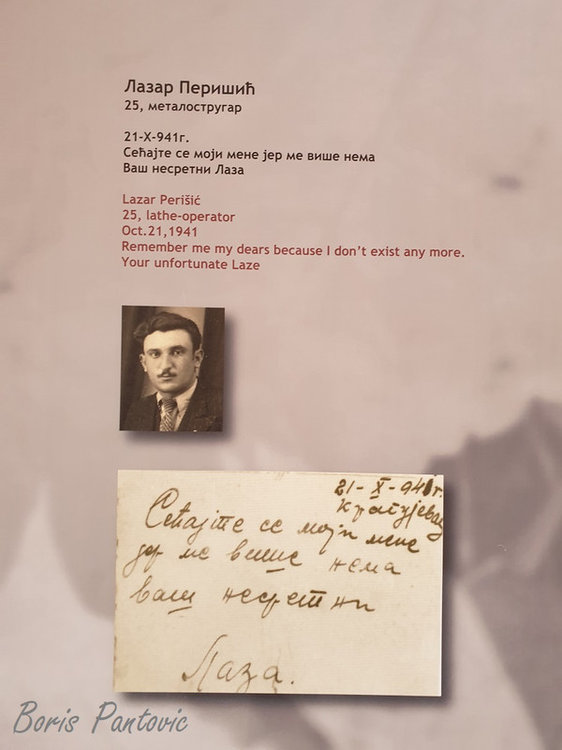 Лазар Перишић
25, металостругар
21-X-941г.
Сећајте се моји мене јер ме више нема
Ваш несретни Лаза
Lazar Perišić
25, lathe-operator
Oct.21,1941
Remember me my dears because I don't exist any more.
Your unfortunate Laze
21-X-941г.
Крагујевац
Сећајте се моји мене
јер ме више нема
ваш несретни
Лаза.
Boris Pantovic